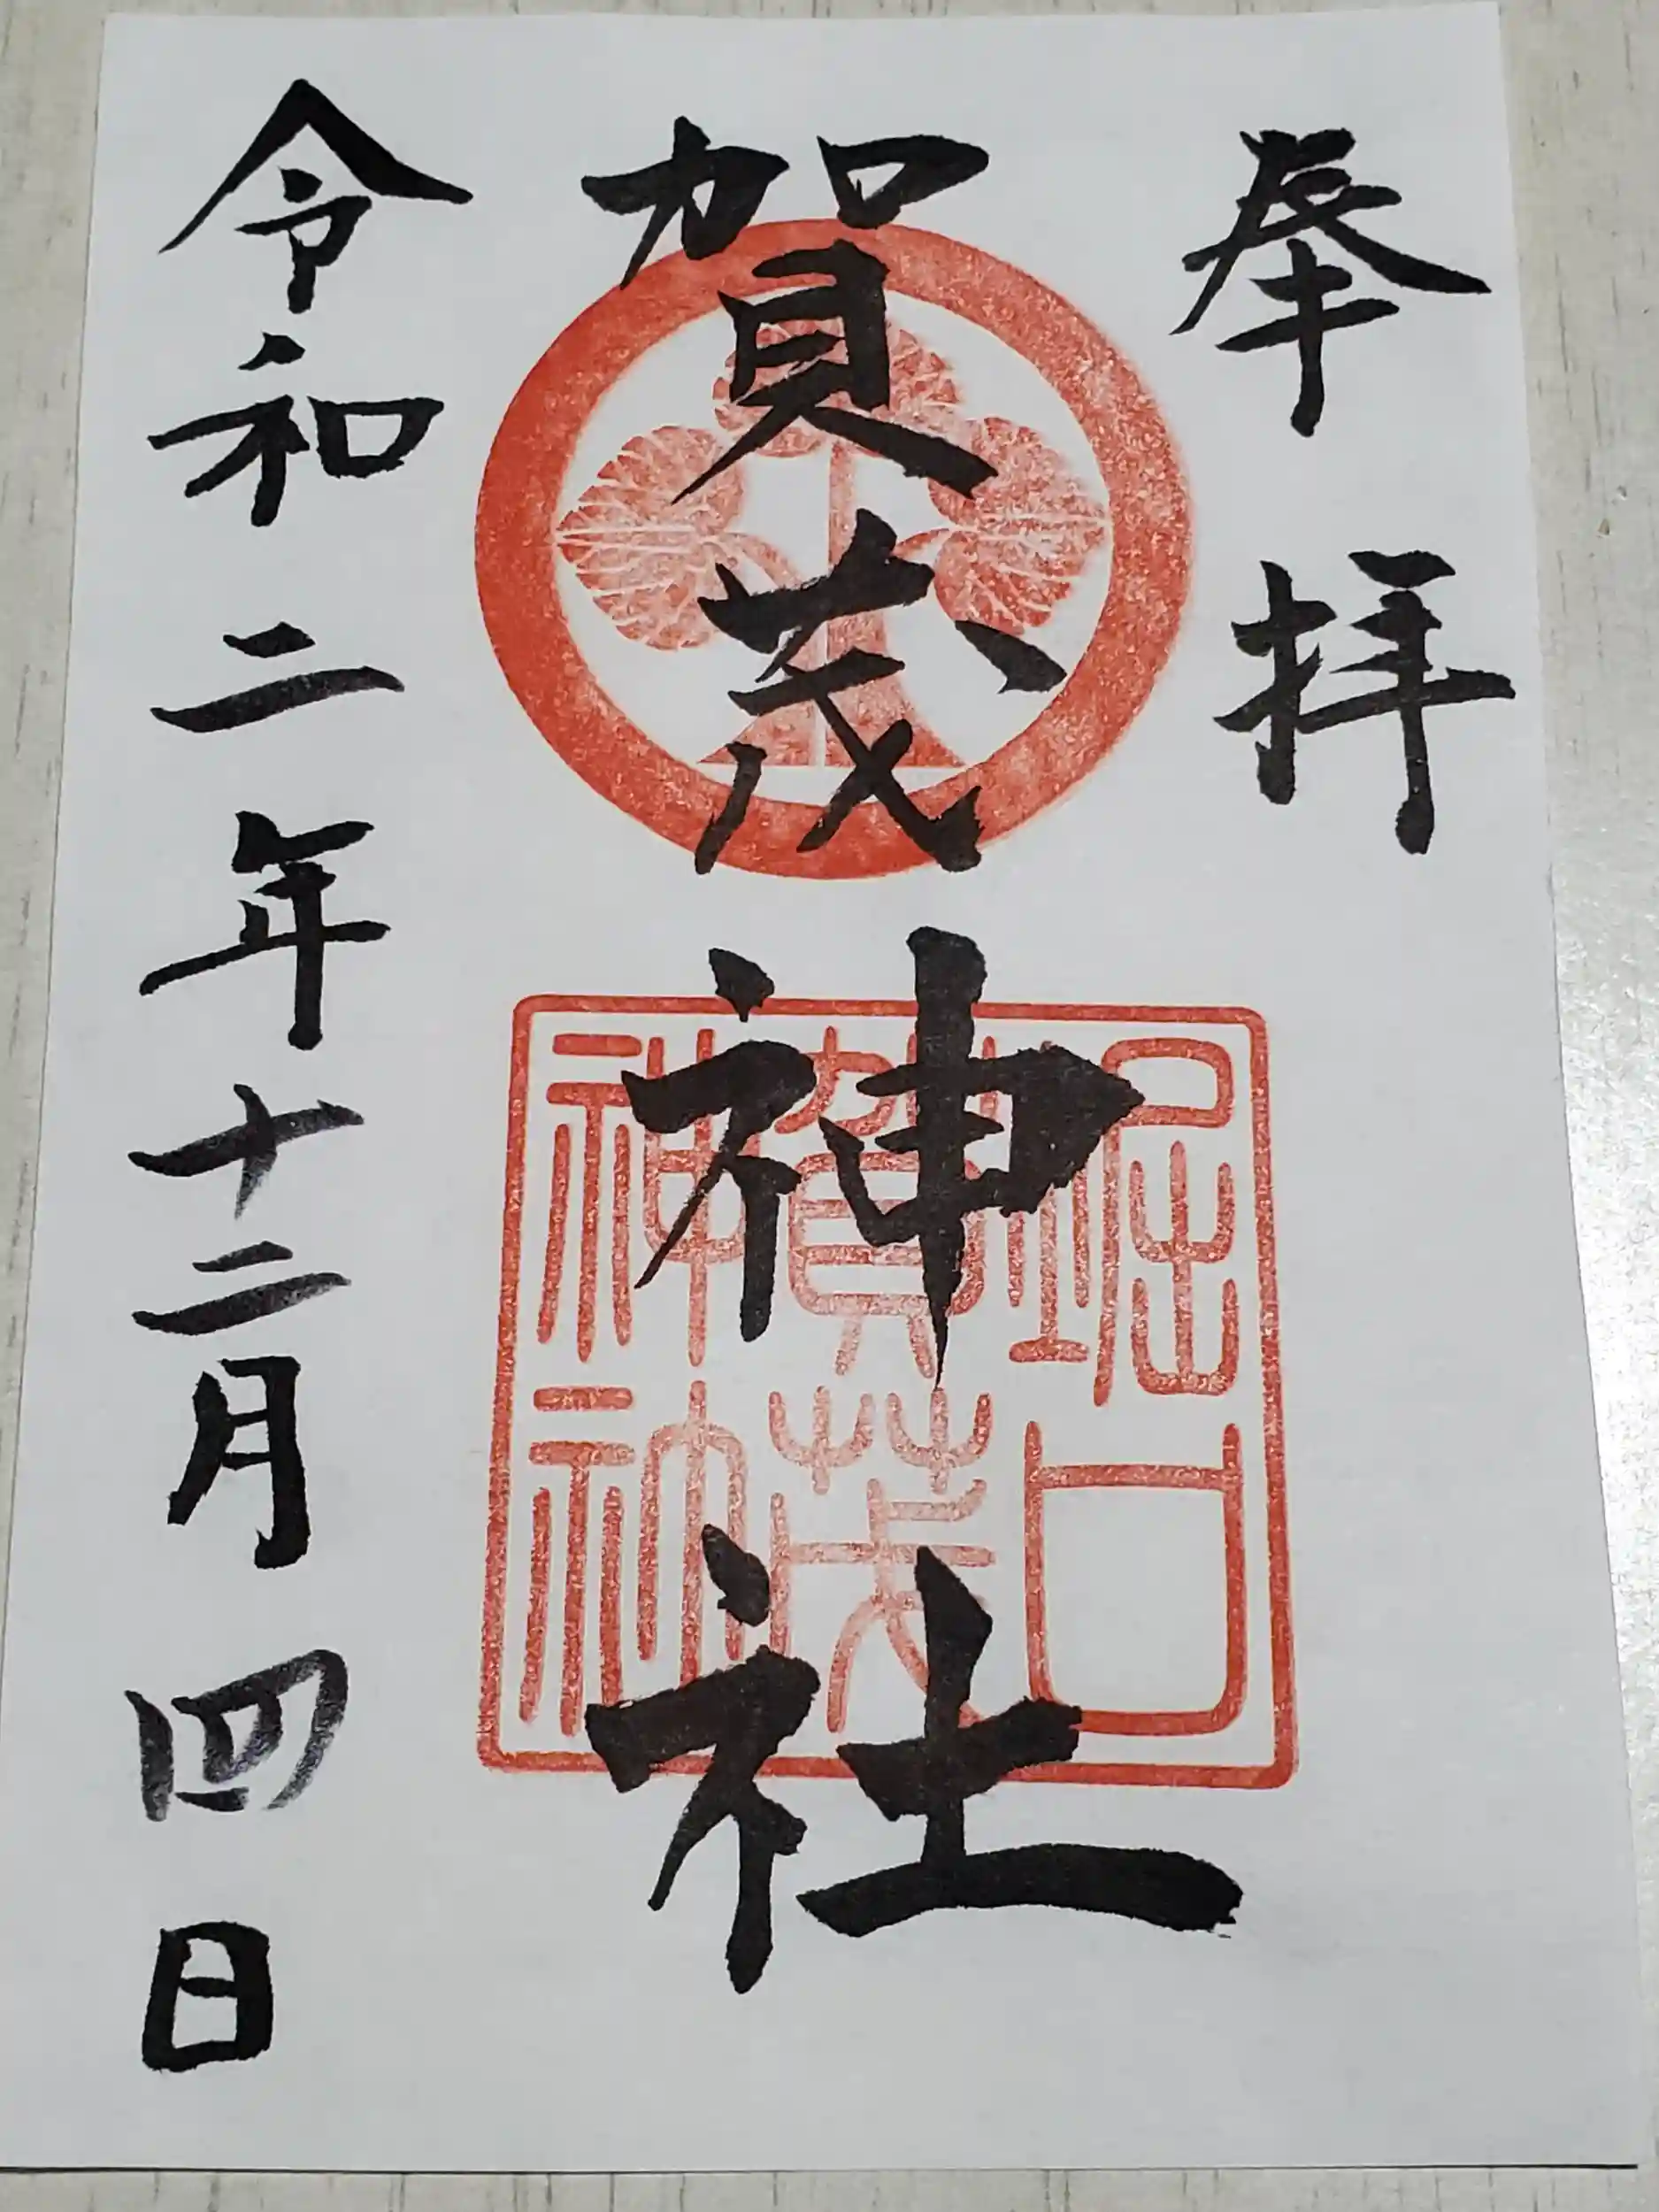 奉拝
賀茂神社
堀口
賀茂
神社
令和二年十二月四日